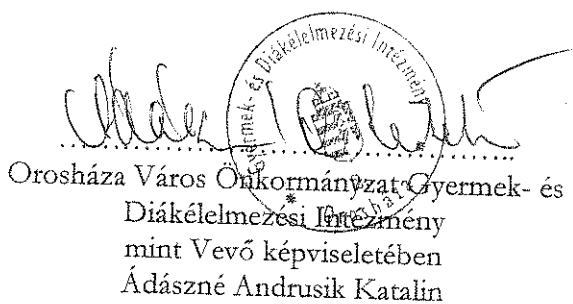 Gyermek- és Diákélelmezési Intézmény
* Orosháza *
Orosháza Város Önkormányzat Gyermek- és
Diákélelmezési Intézmény
mint Vevő képviseletében
Ádászné Andrusik Katalin